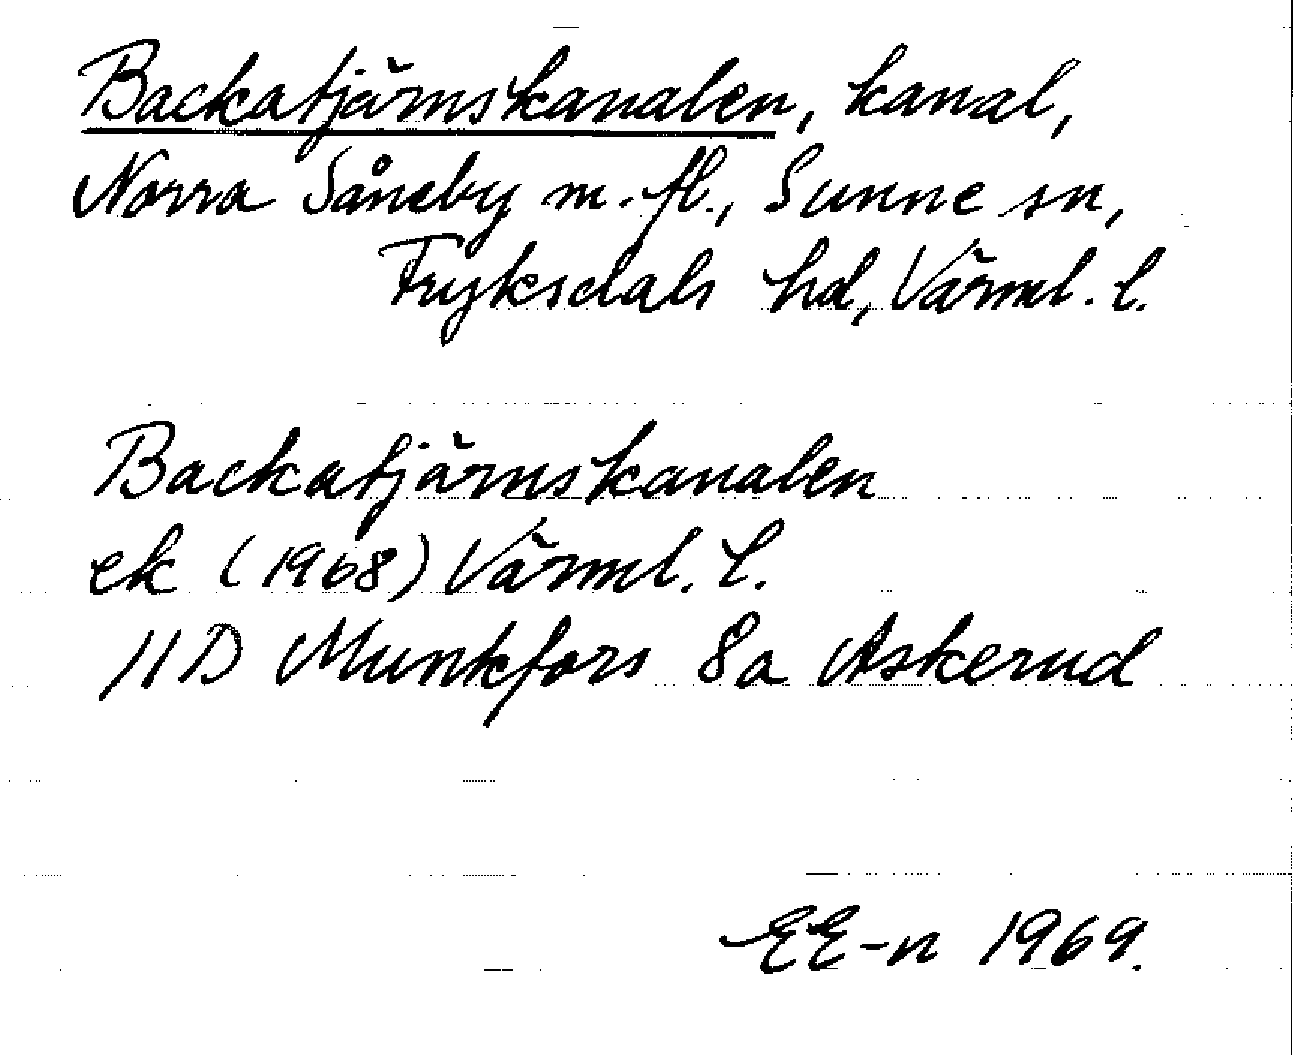 Backatjärnskanalen, kanal,
Norra Såneby m. fl., Sunne sn,
Fryksdals hd, Värml. l.
Backatjärnskanalen
ek (1968) Värml. l.
11D Munkfors 8a Askerud
EE-n 1969.